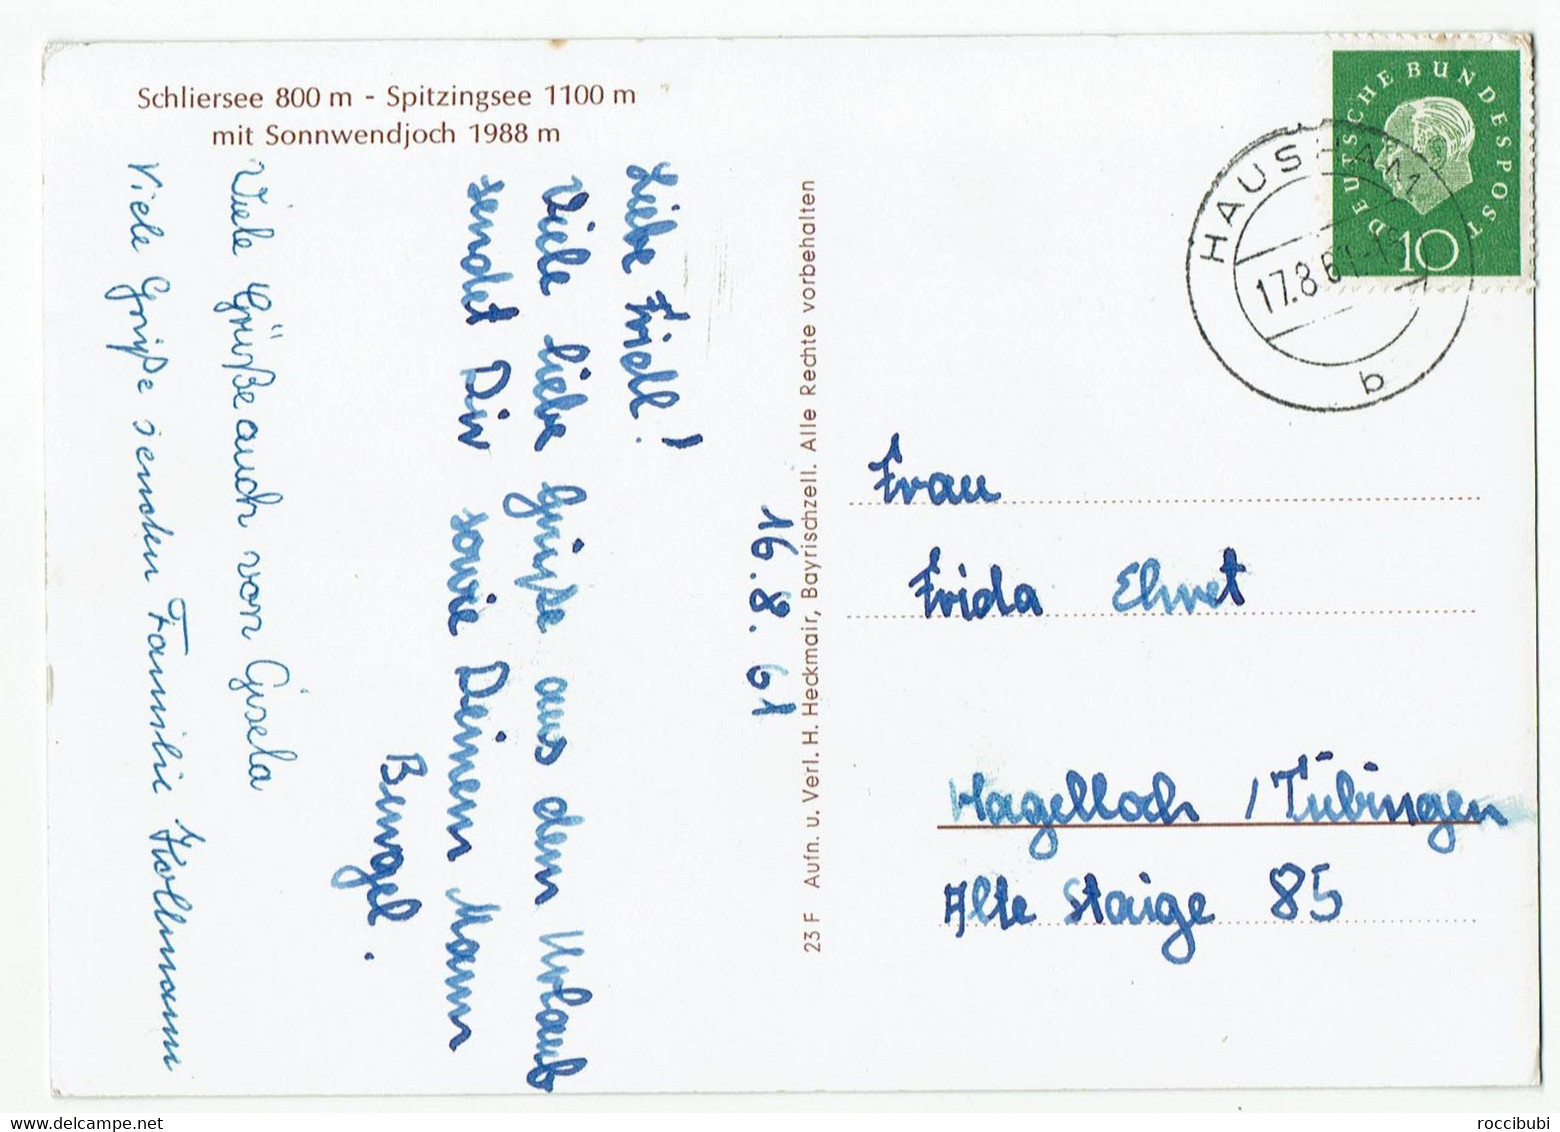 Schliersee 800 m - Spitzingsee 1100 m
mit Sonnwendjoch 1988 m
16.8.61
Liebe Friedl!
Viele liebe Grüße aus dem Urlaub
sendet Dir sowie Deinem Mann
Bengel.
Viele Grüße auch von Gisela
Viele Grüße senden Familie Hollmann
23 F Aufn. u. Verl. H. Heckmair, Bayrischzell. Alle Rechte vorbehalten
DEUTSCHE BUNDESPOST
10
HAUSHAM
17.8.61
b
Frau
Frida Ehret
Hagelloch / Tübingen
Alte Staige 85
www.delcampe.net
roccibubi